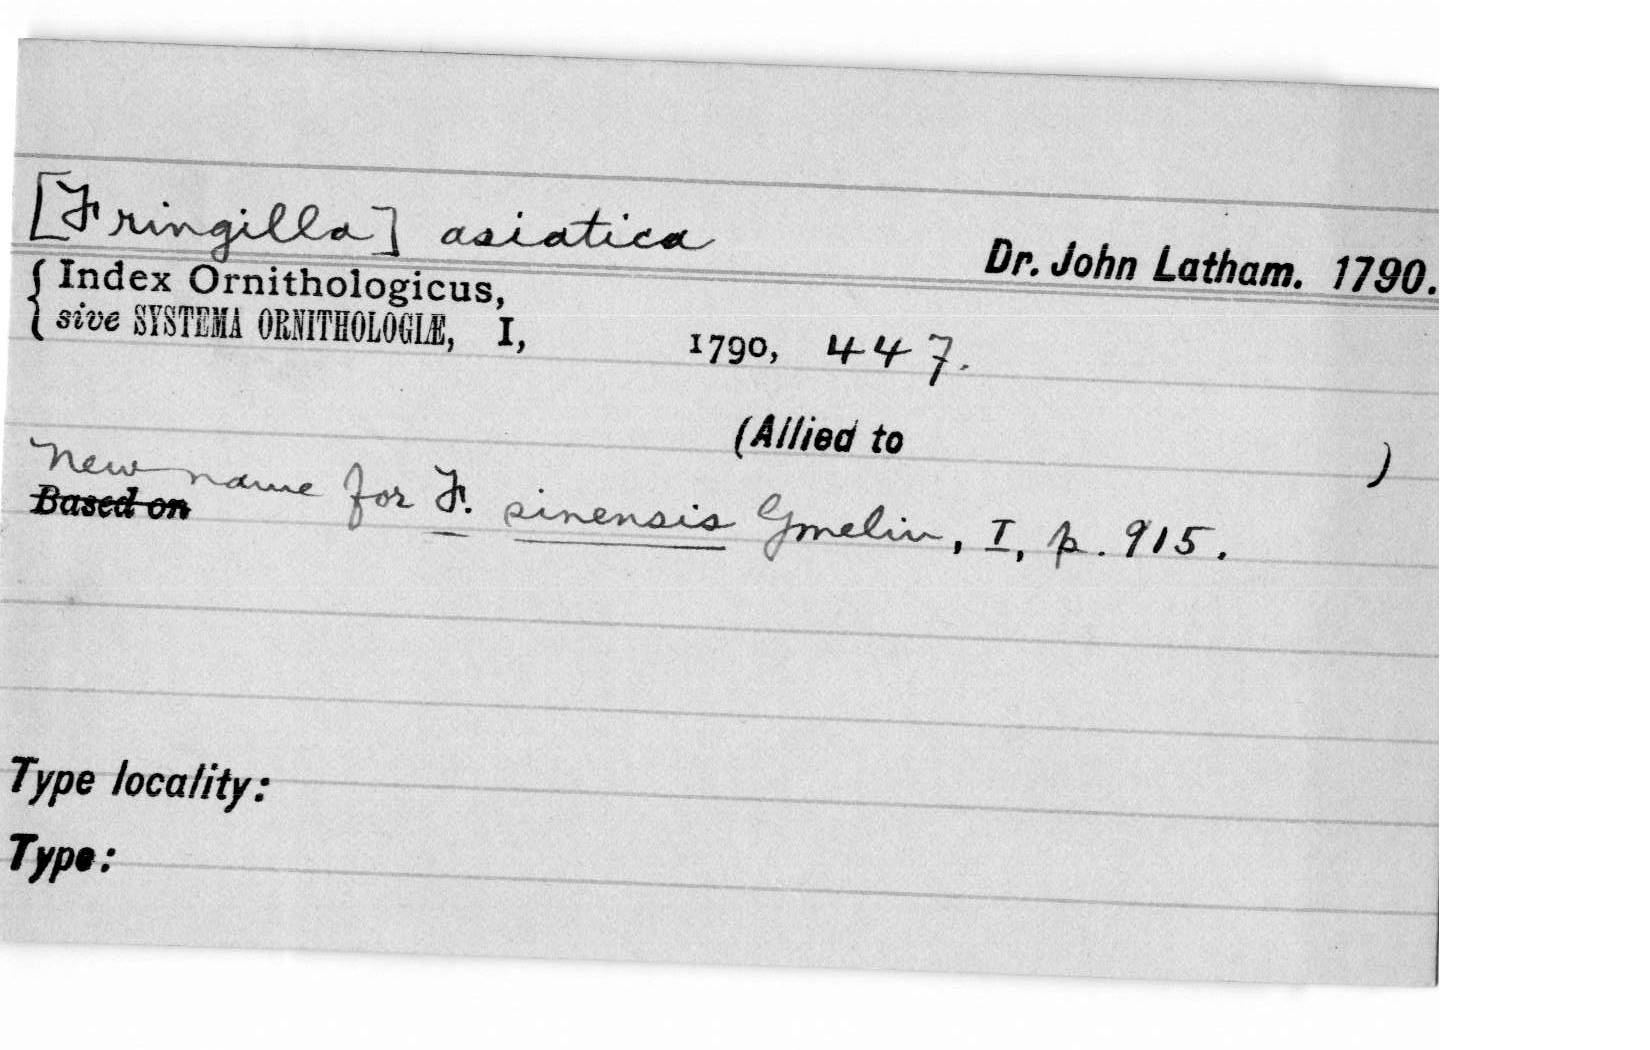 [Fringilla] asiatica
Dr. John Latham. 1790.
Index Ornithologicus,
sive SYSTEMA ORNITHOLOGIÆ, I, 1790, 447.
(Allied to )
New name for F. sinensis Gmelin, I, p. 915.
Based on
Type locality:
Type: